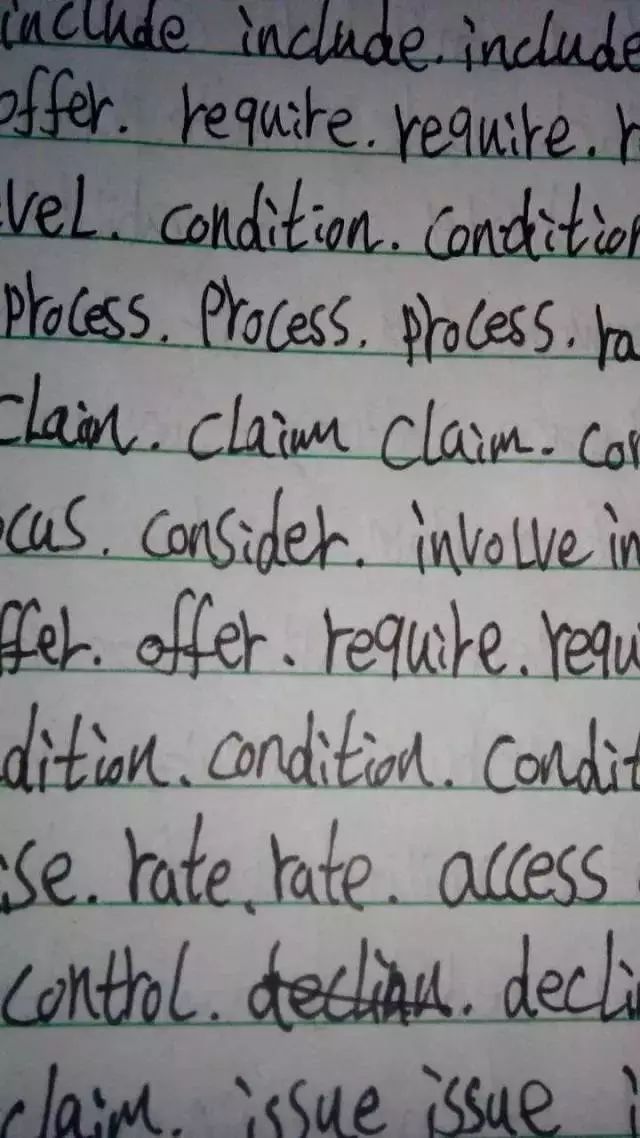 include include. include
offer. require. require. r
vel. condition. condition
process. process. process. ra
claim. claim claim. con
ocus. consider. involve in
ffer. offer. require. requi
dition. condition. condit
se. rate. rate. access
control. declin. decli
claim. issue issue i